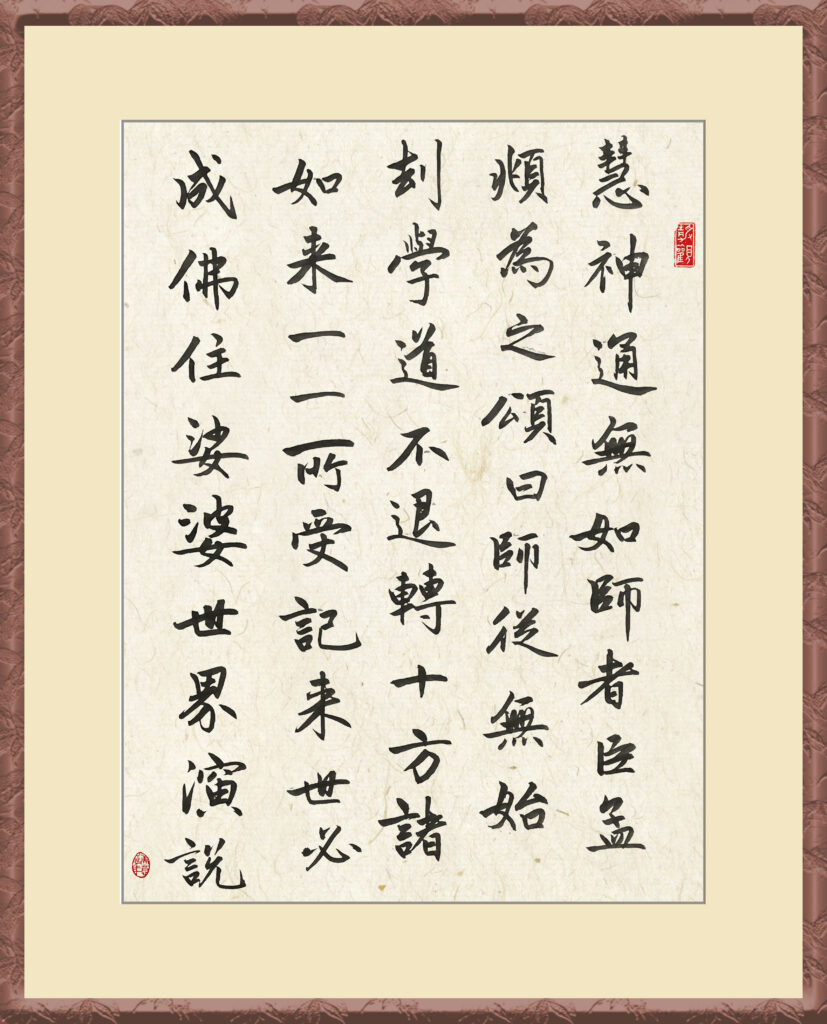 慧神通無如師者臣孟
頫為之頌曰師從無始
刦學道不退轉十方諸
如来一一所受記来世必
成佛住娑婆世界演説